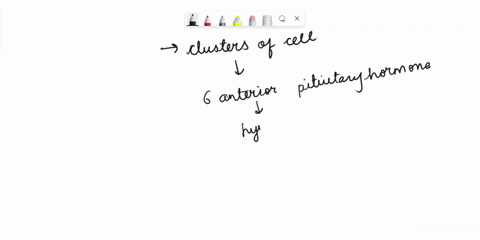 → clusters of cell
↓
6 anterior pituitary hormone
↓
hy